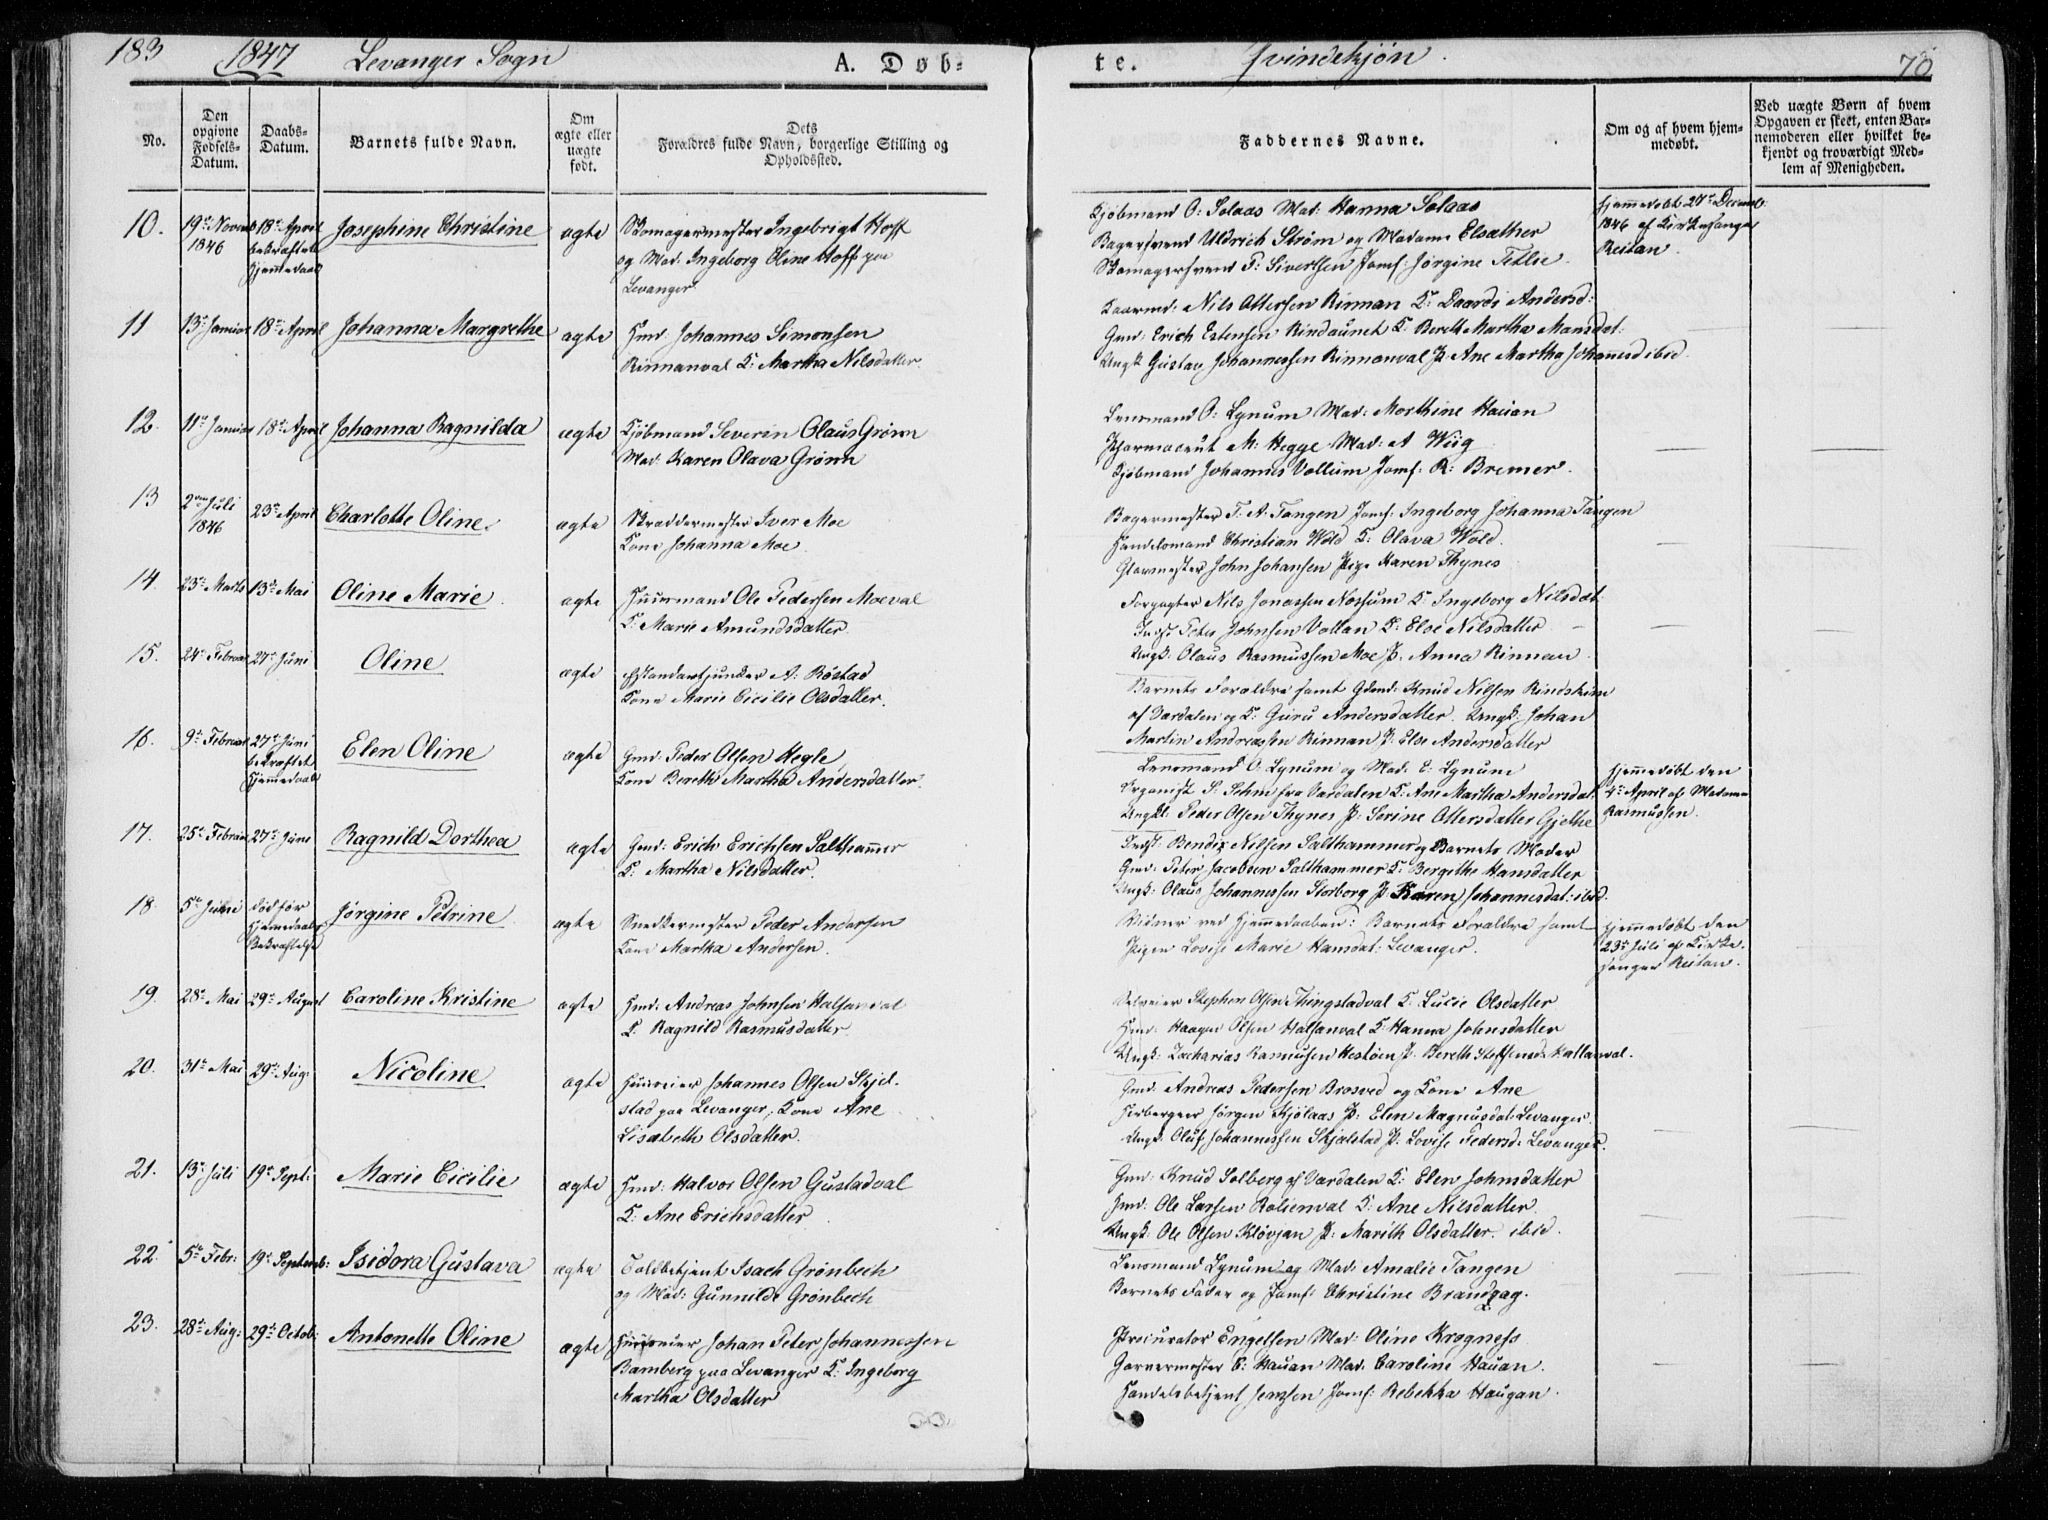 183 1847 Levanger Sogn A. Døb- te. Qvindekjøn. 70
No.
Den opgivne Fødsels-Datum.
Daabs-Datum.
Barnets fulde Navn.
Om ægte eller uægte født.
Dets Forældres fulde Navn, borgerlige Stilling og Opholdssted.
Faddernes Navne.
Om og af hvem hjemmedøbt.
Ved uægte Børn af hvem Opgaven er skeet, enten Barnemoderen eller hvilket bekjendt og troværdigt Medlem af Menigheden.
10. 19de Novemb 1846 18de April bekræftet hjemmedaab Josephine Christine ægte
Skomagermester Ingebrigt Hoff
og Mad: Ingeborg Oline Hoff paa
Levanger
Kjøbmand O: Solaas Mad: Hanna Solaas
Bagersvend Uldrich Strøm og Madam Elsæther
Skomagersvend P: Sivertsen Jomf: Jørgine Tetlie
Hjemmedøbt 27de Decemb:
1846 af Kirkesanger
Reitan
11 13de Januar 18de April Johanna Margrethe ægte
Hmd: Johannes Simonsen
Rinnanval K: Martha Nilsdatter.
Kaarmd: Nils Ottersen Rinnan K: Daardi Andersd:
Gmd: Erich Estensen Rindaunet K: Bereth Martha Mansdat:
Ungk: Gustav Johannessen Rinnanval P: Ane Martha Johannesd ibid.
12. 11te Januar 18de April Johanna Ragnilda ægte
Kjøbmand Severin Olaus Grønn
Mad: Karen Olava Grønn
Lensmand O: Lynum Mad: Morthine Hauan
Pharmaceut M: Hegge Mad: A Wiig
Kjøbmand Johannes Vollum Jomf: R: Bremer.
13 2den Juli 1846 23de April Charlotte Oline. ægte
Skræddermester Iver Moe
Kone Johanna Moe
Bagermester T. A. Tangen Jomf: Ingeborg Johanna Tangen
Handelsmand Christian Wold K: Olava Wold.
Glarmester John Johansen Pige Karen Thynes
14. 23de Marts 13de Mai Oline Marie ægte
Huusmand Ole Pedersen Moeval
K: Marie Amundsdatter.
Forpagter Nils Jonassen Nossum K: Ingeborg Nilsdat
Indst Peter Johnsen Vollan K: Else Nilsdatter
Ungk: Olaus Rasmussen Moe P: Anna Rinnan
15. 24de Februar 27de Juni Oline ægte
Standartjunker A: Røstad
Kone Marie Cicilie Olsdatter.
Barnets Forældre samt Gdmd: Knud Nilsen Rindsheim
af Værdalen og K: Guru Andersdatter. Ungk: Johan
Martin Andreassen Rinnan P: Else Andersdatter
16. 9de Februar 27de Juni bekræftet hjemmedaab Elen Oline ægte
Gmd: Peder Olsen Hegle,
Kone Bereth Martha Andersdatter.
Lensmand O: Lynum og Mad. E: Lynum
Organist S: Sehm fra Værdalen K: Ane Martha Andersdat.
Ungkl Peder Olsen Thynes P: Serine Ottersdatter Gjethe
Hjemmedøbt den
4de April af Madame
Rasmussen.
17. 25de Februar 27de Juni Ragnild Dorthea ægte
Gmd: Erich Erichsen Salthammer
K: Martha Nilsdatter.
Indst: Bendix Nilsen Salthammer og Barnets Moder
Gmd: Peter Jacobsen Salthammer K: Bergithe Hansdatter
Ungk: Olaus Johannessen Storborg P: Karen Johannesdat: ibid
18. 5te Juni død før Hjemmedaabs Bekræftelse Jørgine Petrine ægte
Snedkermester Peder Andersen
Kone Martha Andersen.
Vidner ved Hjemmedaaben: Barnets Forældre samt
Pigen Lovise Marie Hansdat: Levanger.
Hjemmedøbt den
23de Juli af Kirke-
sanger Reitan.
19. 28de Mai 29de August Caroline Kristine ægte
Hmd: Andreas Johnsen Halsanval
K: Ragnild Rasmusdatter.
Selveier Stephen Olsen Thingstadval K: Lucie Olsdatter
Hmd: Haagen Olsen Halsanval K: Hanna Johnsdatter
Ungk: Zacharias Rasmussen Hestøen P: Bereth Steffensd: Hallanval.
20. 31te Mai 29de Aug: Nicoline ægte
Huuseier Johannes Olsen Skjel-
stad paa Levanger, Kone Ane
Lisabeth Olsdatter.
Gmd: Andreas Pedersen Brosved og Kone Ane
Herbergeer Jørgen Kjølaas P: Elen Magnusdat: Levanger
Ungk. Oluf Johannessen Skjelstad P. Lovise Pedersd: Levanger.
21. 13de Juli 19de Sept: Marie Cicilie ægte
Hmd: Halvor Olsen Gustadval
K: Ane Erichsdatter.
Gmd: Knud Solberg af Værdalen K: Elen Johnsdatter
Hmd: Ole Larsen Rolienval K: Ane Nilsdatter.
Ungk: Ole Olsen Kløvjan P: Marith Olsdatter. ibid.
22. 5te Febr: 19de Septemb: Isidora Gustava ægte
Toldbetjent Isach Grønbech
og Mad: Gunnilde Grønbech
Lensmand Lynum og Mad: Amalie Tangen
Barnets Fader og Jomf: Christine Brandzag.
23. 28de Aug: 29de Octob: Antonette Oline ægte
Huuseier Johan Peter Johannessen
Bamberg paa Levanger K: Ingeborg
Martha Olsdatter
Procurator Engelsen Mad: Oline Krogness
Garvermester C: Hauan Mad: Caroline Hauan.
Handelsbetjent Jenssen Jomf: Rebekka Haugan.